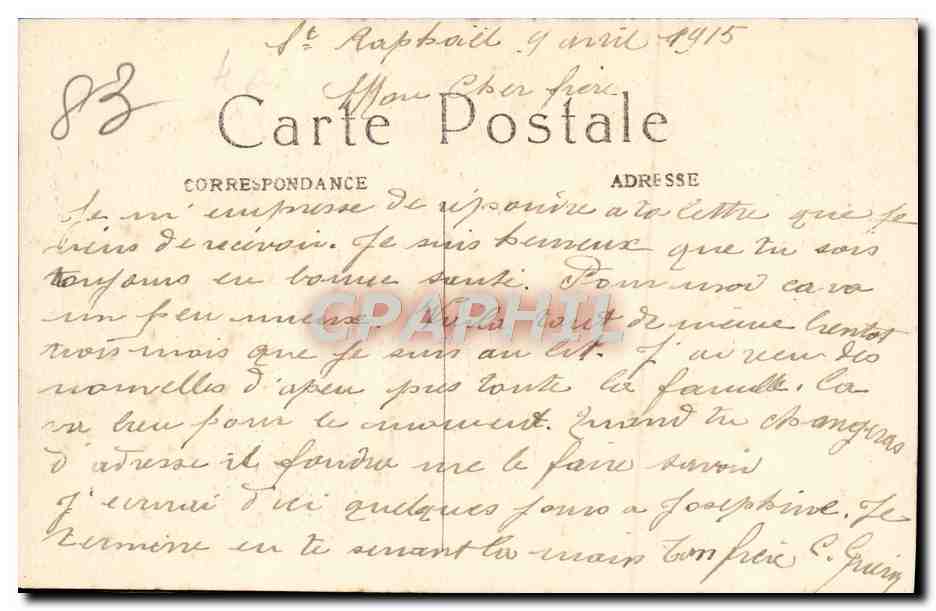 St Raphaël 9 avril 1915
83
Mon Cher frère
Carte Postale
CORRESPONDANCE
ADRESSE
Je m'empresse de répondre a ta lettre que je
viens de recevoir. Je suis heureux que tu sois
toujours en bonne santé. Pour moi ca va
un peu mieux. Voila tout de même bientot
trois mois que je suis au lit. J'ai recu des
nouvelles d'apeu pres toute la famille. Ca
va bien pour le moment. Quand tu changeras
d'adresse il foudra me le faire savoir
J'ecrirai d'ici quelques jours a Josephine. Je
termine en te serrant la main ton frère C. Guerin
CPAPHIL